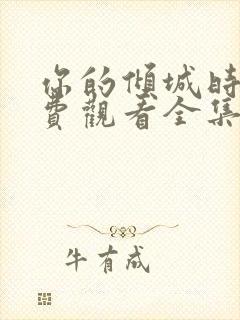 你的倾城時
費觀看全集
牛有成